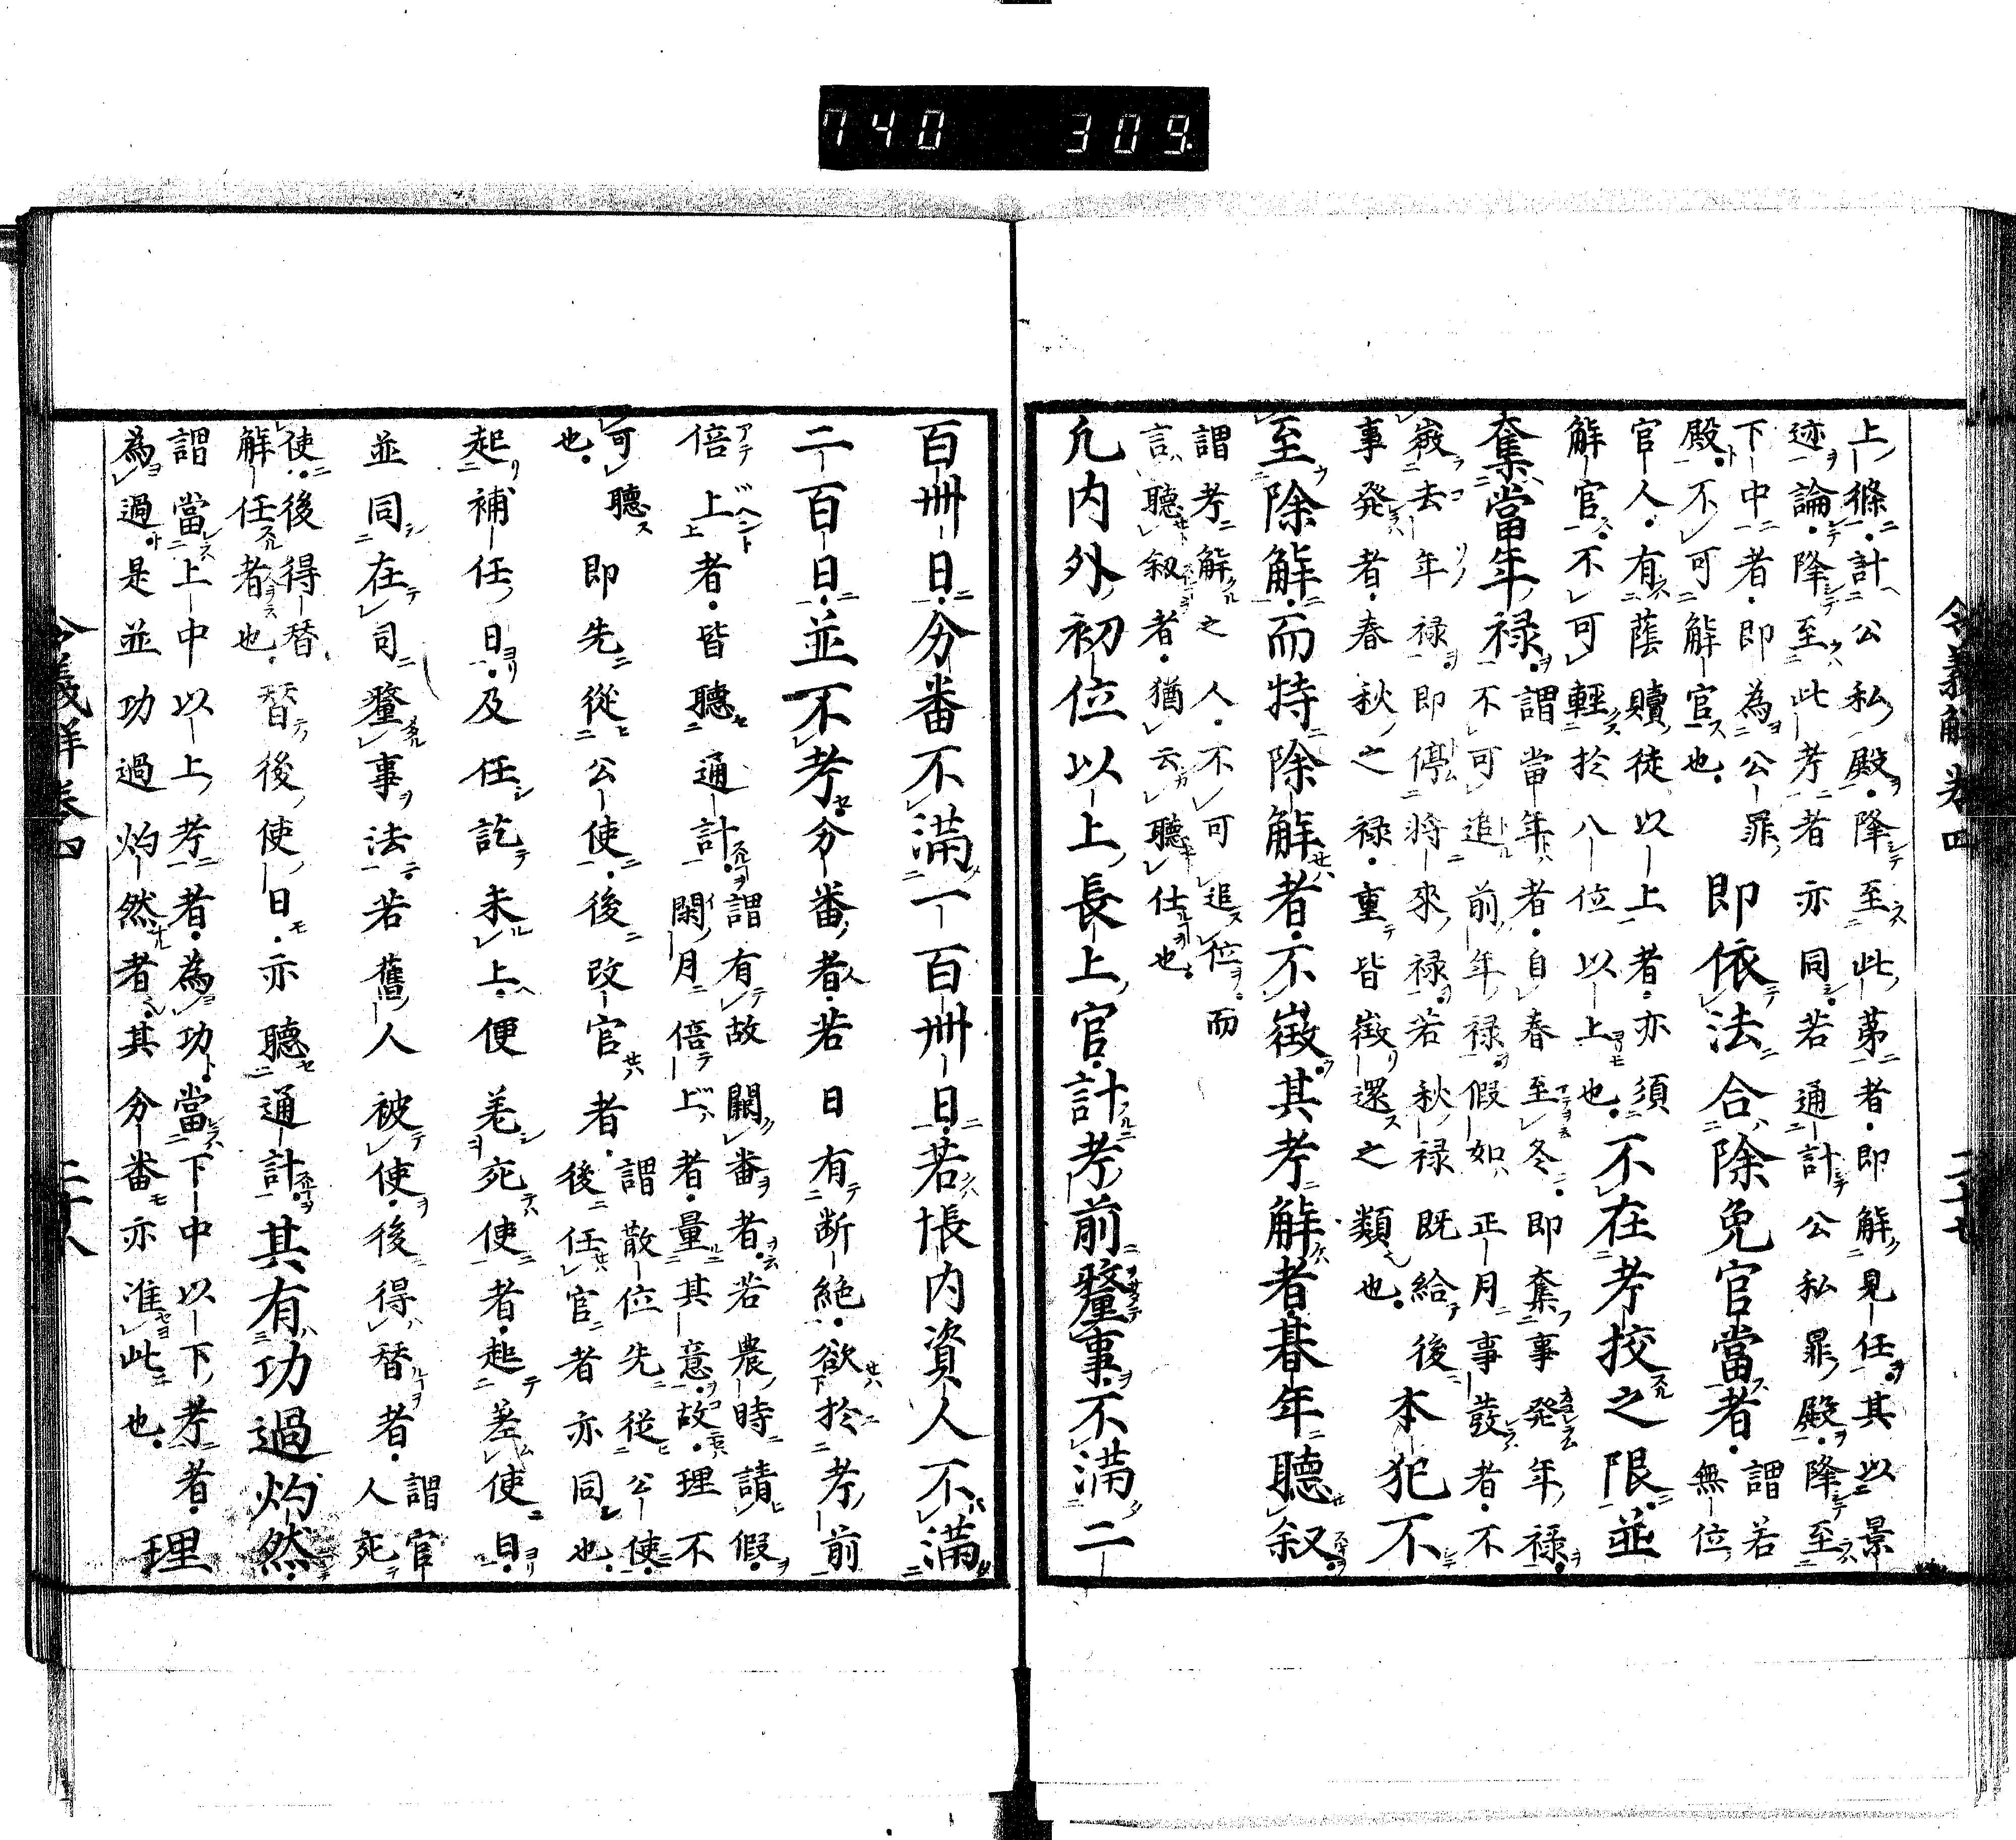 740 309.
令義解卷四 二十七
上條計公私殿降至此第者即解見任其以景
迹論降至此考者亦同若通計公私罪殿降至
下中者即為公罪
殿不可解官也
即依法合除免官當者
謂若
無位
官人有蔭贖徒以上者亦須
解官不可輕於八位以上也
不在考挍之限並
奪當年禄
謂當年者自春至冬即奪事発年禄
不可追前年禄假如正月事發者不
徴去年禄即停将來禄若秋禄既給後
事発者春秋之禄重皆徴還之類也
本犯不
至除解而特除解者不徴其考解者朞年聽叙
謂考解之人不可追位而
言聽叙者猶云聽仕也
凢内外初位以上長上官計考前釐事不滿二
百卌日分番不滿一百卌日若帳内資人不滿
二百日並不考分番者若日有断絶欲於考前
倍上者皆聽通計
謂有故闕番者若農時請假
閑月倍上者量其意故理不
可聽
也
即先從公使後改官者
謂散位先從公使
後任官者亦同也
起補任日及任訖未上便差死使者起差使日
並同在司釐事法若舊人被使後得替者
謂官
人死
使後得替
解任者也
替後使日亦聽通計其有功過灼然
謂當上中以上考者為功當下中以下考者
為過是並功過灼然者其分番亦准此也
理
令義解卷四 二十八